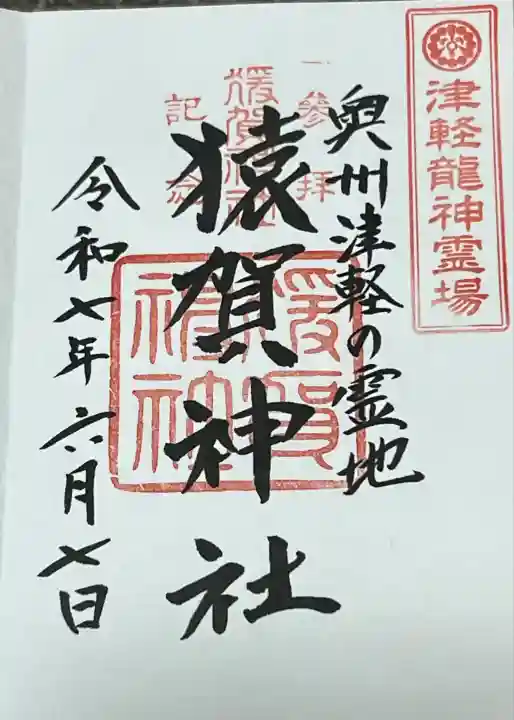 津軽龍神霊場
奥州津軽の霊地
参拝
猿賀神社
記念
猿賀神社
猿賀
神社
令和七年六月七日